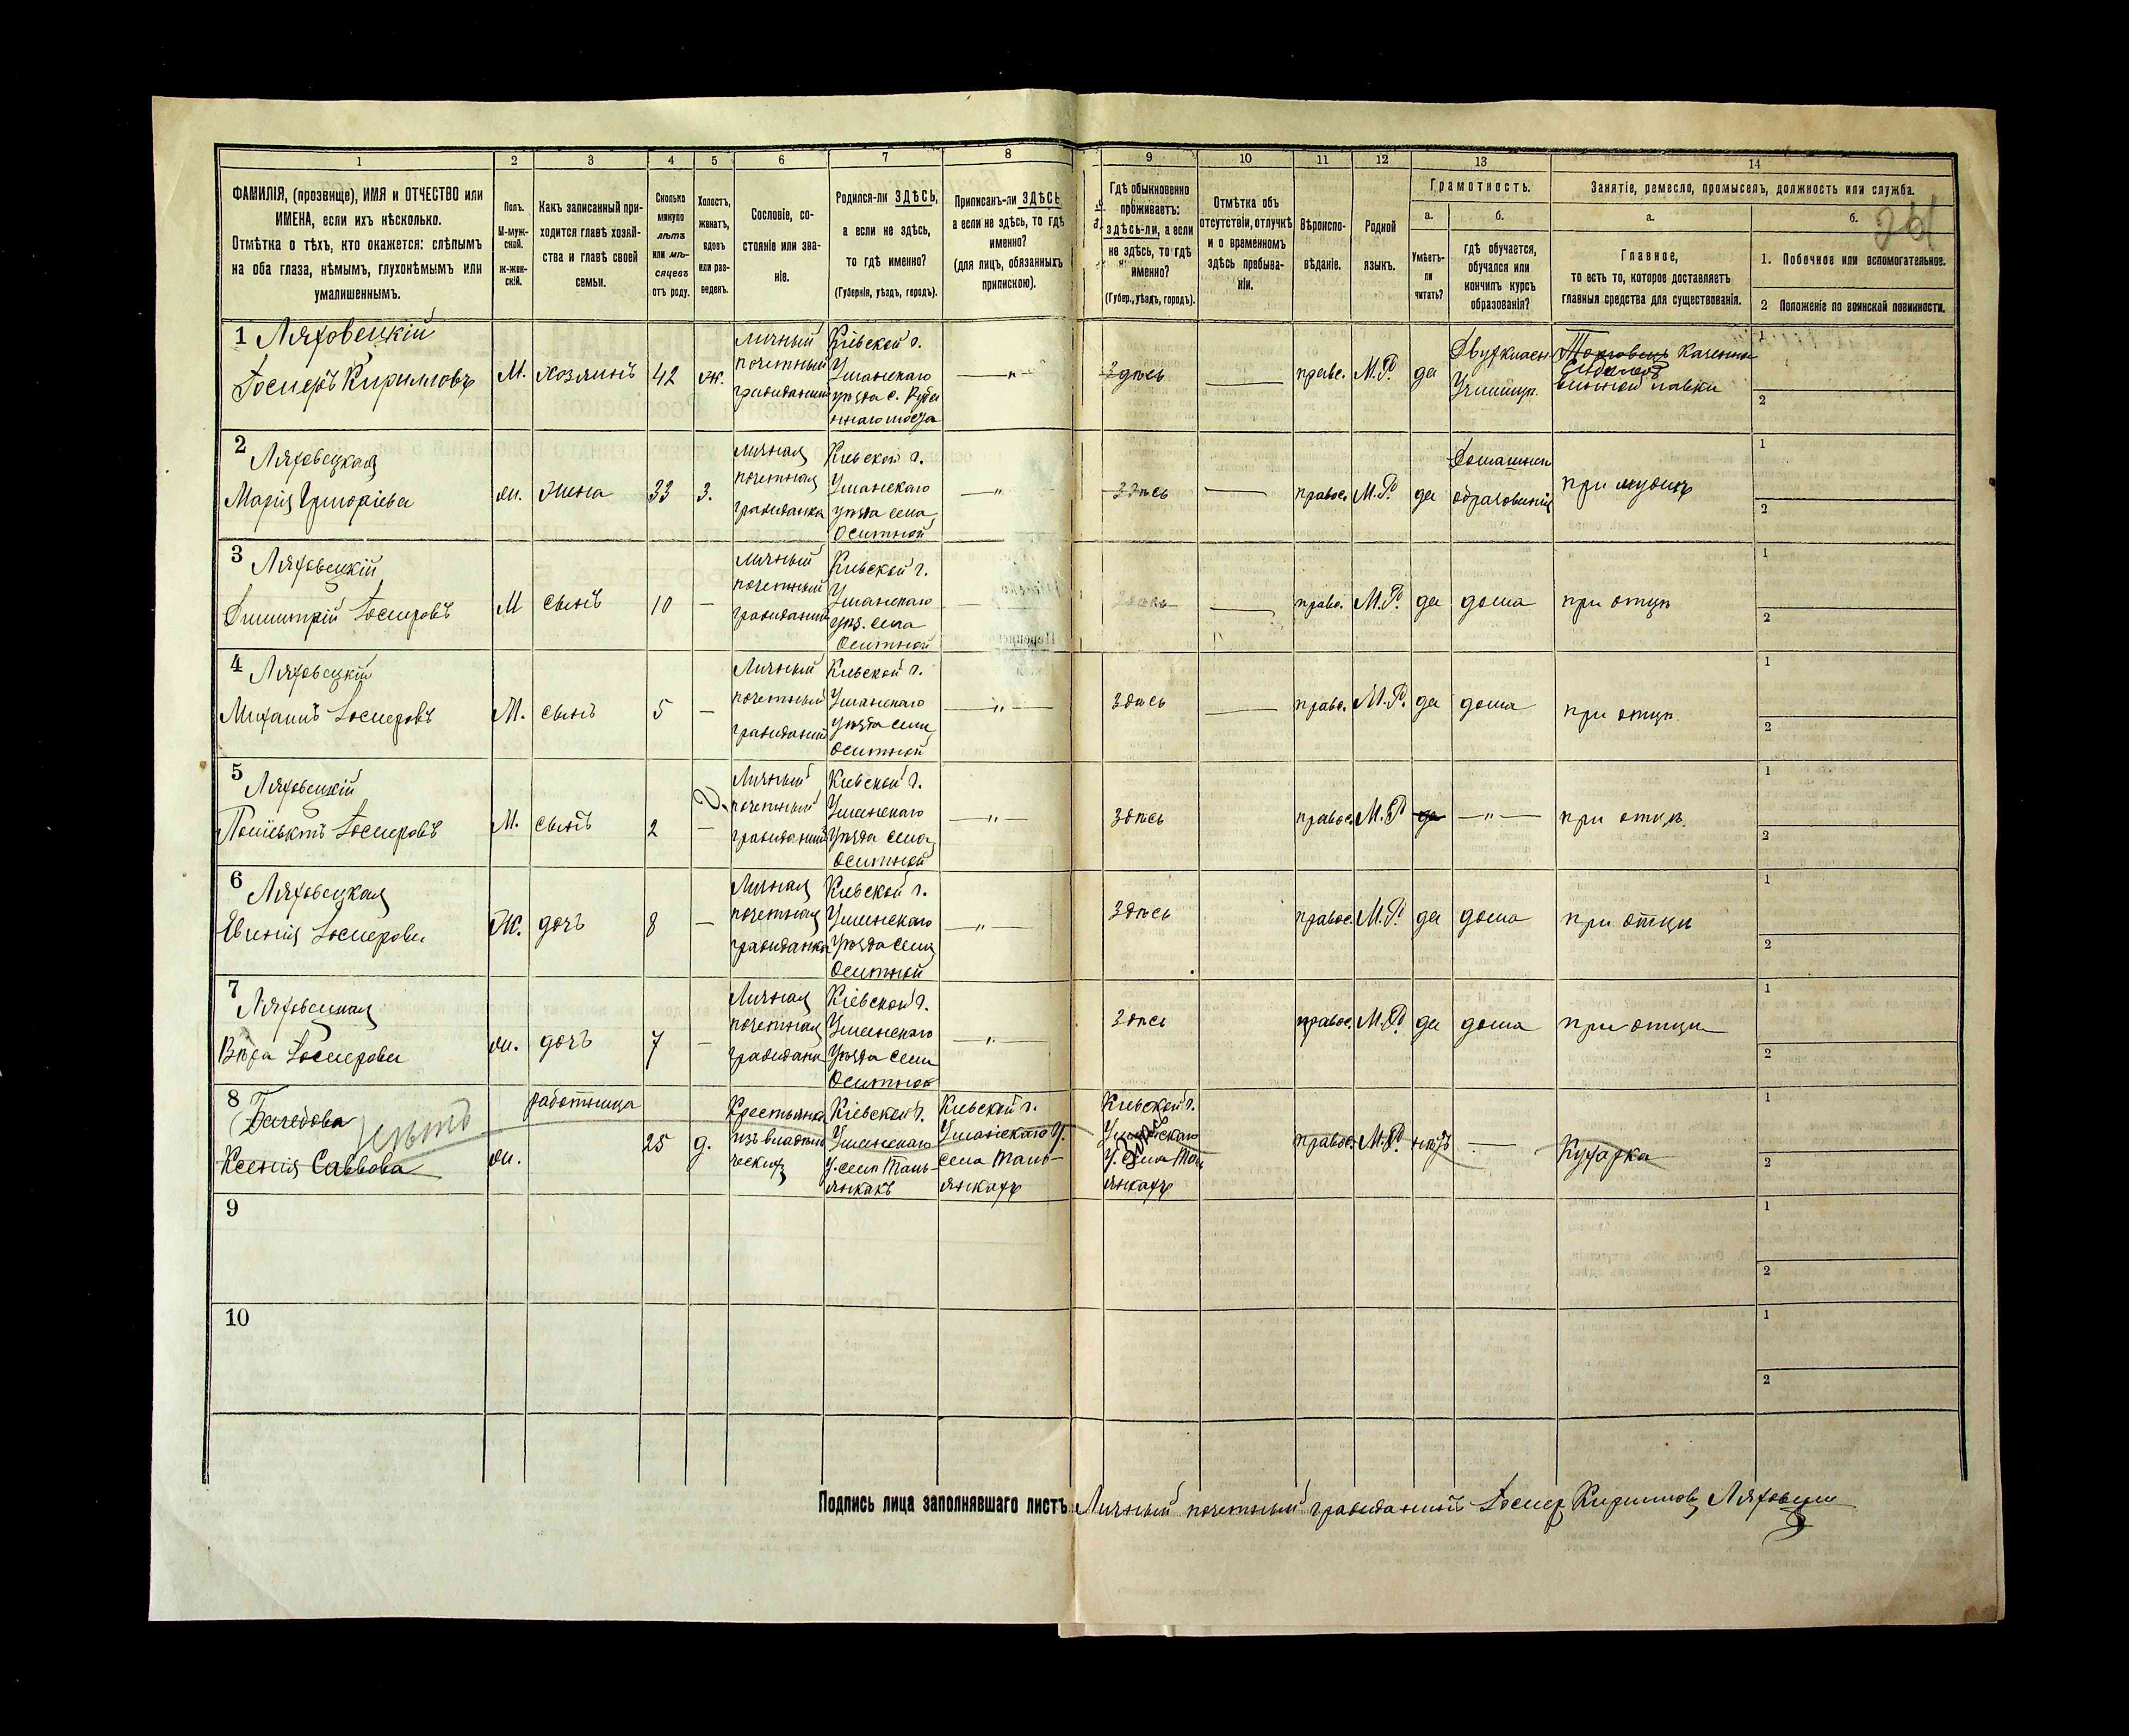 1 2 3 4 5 6 7 8 9 10 11 12 13 14
ФАМИЛІЯ, (прозвище), ИМЯ и ОТЧЕСТВО или
ИМЕНА, если ихъ нѣсколько.
Отмѣтка о тѣхъ, кто окажется: слѣпымъ
на оба глаза, нѣмымъ, глухонѣмымъ или
умалишеннымъ.
Полъ.
М-муж-
ской.
Ж-жен-
скій.
Какъ записанный при-
ходится главѣ хозяй-
ства и главѣ своей
семьи.
Сколько
минуло
лѣтъ
или мѣ-
сяцевъ
отъ роду.
Холостъ,
женатъ,
вдовъ
или раз-
веденъ.
Сословіе, со-
стояніе или зва-
ніе.
Родился-ли ЗДѢСЬ,
а если не здѣсь,
то гдѣ именно?
(Губернія, уѣздъ, городъ).
Приписанъ-ли ЗДѢСЬ,
а если не здѣсь, то гдѣ
именно?
(для лицъ, обязанныхъ
припискою).
Гдѣ обыкновенно
проживаетъ:
здѣсь-ли, а если
не здѣсь, то гдѣ
именно?
(Губер., уѣздъ, городъ).
Отмѣтка объ
отсутствіи, отлучкѣ
и о временномъ
здѣсь пребыва-
ніи.
Вѣроиспо-
вѣданіе.
Родной
языкъ.
Грамотность.
а.
Умѣетъ-
ли
читать?
б.
гдѣ обучается,
обучался или
кончилъ курсъ
образованія?
Занятіе, ремесло, промыселъ, должность или служба.
а.
Главное,
то есть то, которое доставляетъ
главныя средства для существованія.
б.
1. Побочное или вспомогательное.
2 Положеніе по воинской повинности.
1 Ляховецкій
Іосифъ Кириловъ
М.
хозяинъ
42
ж.
личный
почетный
гражданинъ
Кіевской г.
Уманскаго
уѣзда с.
здѣсь
правс.
М.Р.
да
Двухкласн.
Училищ.
Торговецъ казенной
винной лавки
1
2
2 Ляховецкая
Марія Григоріева
ж.
жена
33
з.
личная
почетная
гражданка
Кіевской г.
Уманскаго
уѣзда села
Оситной
здѣсь
правос.
М.Р.
да
Домашнее
образованіе
при мужѣ
1
2
3 Ляховецкій
Димитрій Іосифовъ
М
сынъ
10
личный
почетный
гражданинъ
Кіевской г.
Уманскаго
уѣз. села
Оситной
здѣсь
право.
М.Р.
да
дома
при отцѣ
1
2
4 Ляховецкій
Михаилъ Іосифовъ
М.
сынъ
5
Личный
почетный
гражданинъ
Кіевской г.
Уманскаго
Уѣзда села
Оситной
здѣсь
право.
М.Р.
да
дома
при отцѣ
1
2
5 Ляховецкій
Іосифовъ
М.
сынъ
2
Личный
почетный
гражданинъ
Кіевской г.
Уманскаго
Уѣзда села
Оситной
здѣсь
правос.
М.Р
да
при отцѣ
1
2
6 Ляховецкая
Евгенія Іосифова
Ж.
дочъ
8
Личная
почетная
гражданка
Кіевской г.
Уманскаго
Уѣзда села
Оситной
здѣсь
правос.
М.Р.
да
дома
при отцѣ
1
2
7 Ляховецкая
Вѣра Іосифова
ж.
дочъ
7
Личная
почетная
гражданка
Кіевской г.
Уманскаго
Уѣзда села
Оситной
здѣсь
правос.
М.Р.
да
дома
при отцѣ
1
2
8
Ксенія Саввова
ж.
работница
25
д.
Крестьянка
изъ владѣль
ческихъ
Кіевской г.
Уманскаго
У. села Тань-
Кіевской г.
Уманскаго У.
села Тань-
Кіевской г.
Уманскаго
У. села
здѣсь
правос.
М.Р.
нѣтъ
Кухарка
1
2
9
1
2
10
1
2
Подпись лица заполнявшаго листъ Личный почетный гражданинъ Іосиф Кирилловъ